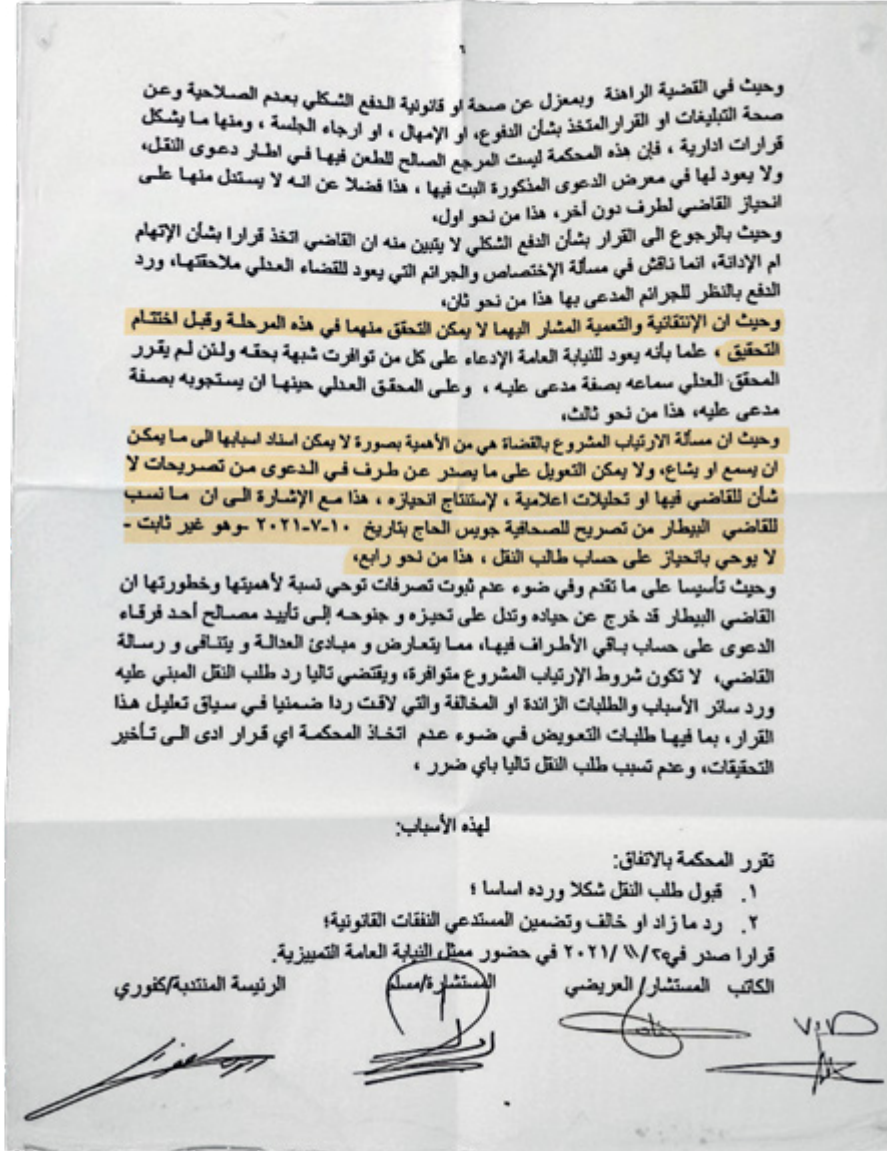 ٦
وحيث في القضية الراهنة وبمعزل عن صحة او قانونية الدفع الشكلي بعدم الصلاحية وعن
صحة التبليغات او القرار المتخذ بشأن الدفوع، او الإمهال ، او ارجاء الجلسة ، ومنها ما يشكل
قرارات ادارية ، فإن هذه المحكمة ليست المرجع الصالح للطعن فيها في اطار دعوى النقل،
ولا يعود لها في معرض الدعوى المذكورة البت فيها ، هذا فضلا عن انه لا يستدل منها على
انحياز القاضي لطرف دون أخر، هذا من نحو اول،
وحيث بالرجوع الى القرار بشأن الدفع الشكلي لا يتبين منه ان القاضي اتخذ قرارا بشأن الإتهام
ام الإدانة، انما ناقش في مسألة الإختصاص والجرائم التي يعود للقضاء العدلي ملاحقتها، ورد
الدفع بالنظر للجرائم المدعى بها هذا من نحو ثان،
وحيث ان الإنتقائية والتعمية المشار اليهما لا يمكن التحقق منهما في هذه المرحلة وقبل اختتام
التحقيق ، علما بأنه يعود للنيابة العامة الإدعاء على كل من توافرت شبهة بحقه ولئن لم يقرر
المحقق العدلي سماعه بصفة مدعى عليه ، وعلى المحقق العدلي حينها ان يستجوبه بصفة
مدعى عليه، هذا من نحو ثالث،
وحيث ان مسألة الارتياب المشروع بالقضاة هي من الأهمية بصورة لا يمكن اسناد اسبابها الى ما يمكن
ان يسمع او يشاع، ولا يمكن التعويل على ما يصدر عن طرف في الدعوى من تصريحات لا
شأن للقاضي فيها او تحليلات اعلامية ، لإستنتاج انحيازه ، هذا مع الإشارة الى ان ما نسب
للقاضي البيطار من تصريح للصحافية جويس الحاج بتاريخ ١٠-٧-٢٠٢١ -وهو غير ثابت -
لا يوحي بانحياز على حساب طالب النقل ، هذا من نحو رابع،
وحيث تأسيسا على ما تقدم وفي ضوء عدم ثبوت تصرفات توحي نسبة لأهميتها وخطورتها ان
القاضي البيطار قد خرج عن حياده وتدل على تحيزه و جنوحه إلى تأييد مصالح أحد فرقاء
الدعوى على حساب باقي الأطراف فيها، مما يتعارض و مبادئ العدالة و يتنافى و رسالة
القاضي، لا تكون شروط الإرتياب المشروع متوافرة، ويقتضي تاليا رد طلب النقل المبني عليه
ورد سائر الأسباب والطلبات الزائدة او المخالفة والتي لاقت ردا ضمنيا في سياق تعليل هذا
القرار، بما فيها طلبات التعويض في ضوء عدم اتخاذ المحكمة اي قرار ادى الى تأخير
التحقيقات، وعدم تسبب طلب النقل تاليا باي ضرر ،
لهذه الأسباب:
تقرر المحكمة بالاتفاق:
١. قبول طلب النقل شكلا ورده اساسا ؛
٢. رد ما زاد او خالف وتضمين المستدعي النفقات القانونية؛
قرارا صدر في / ١١ / ٢٠٢١ في حضور ممثل النيابة العامة التمييزية.
الكاتب المستشار/ العريضي المستشارة/مسلم الرئيسة المنتدبة/كفوري